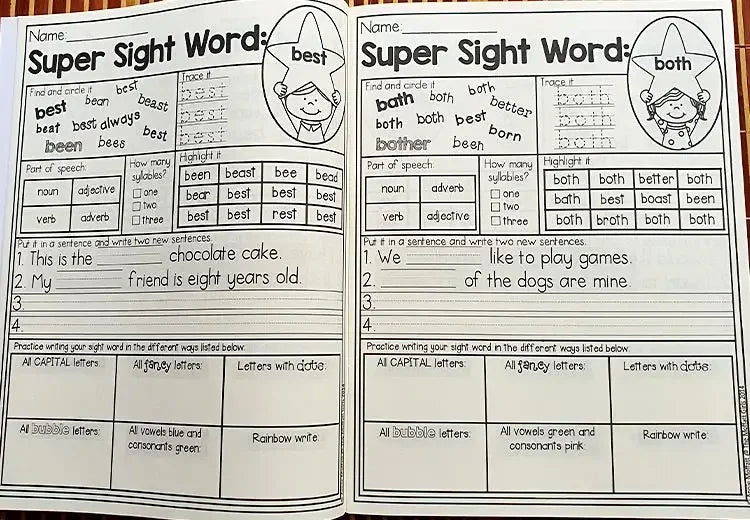 Name:
Super Sight Word:
best
Find and circle it
best bean best beast
beat best always
been bees best
Trace it
best
best
best
Part of speech:
noun adjective
verb adverb
How many
syllables?
one
two
three
Highlight it
been beast bee bead
bear best best best
best best rest best
Put it in a sentence and write two new sentences.
1. This is the chocolate cake.
2. My friend is eight years old.
3.
4.
Practice writing your sight word in the different ways listed below:
All CAPITAL letters: All fancy letters: Letters with dots:
All bubble letters: All vowels blue and
consonants green: Rainbow write:
Name:
Super Sight Word:
both
Find and circle it
bath both both better
both both best born
bother been
Trace it
both
both
both
Part of speech:
noun adverb
verb adjective
How many
syllables?
one
two
three
Highlight it
both both better both
bath best boast been
both broth both both
Put it in a sentence and write two new sentences.
1. We like to play games.
2. of the dogs are mine.
3.
4.
Practice writing your sight word in the different ways listed below:
All CAPITAL letters: All fancy letters: Letters with dots:
All bubble letters: All vowels green and
consonants pink: Rainbow write: